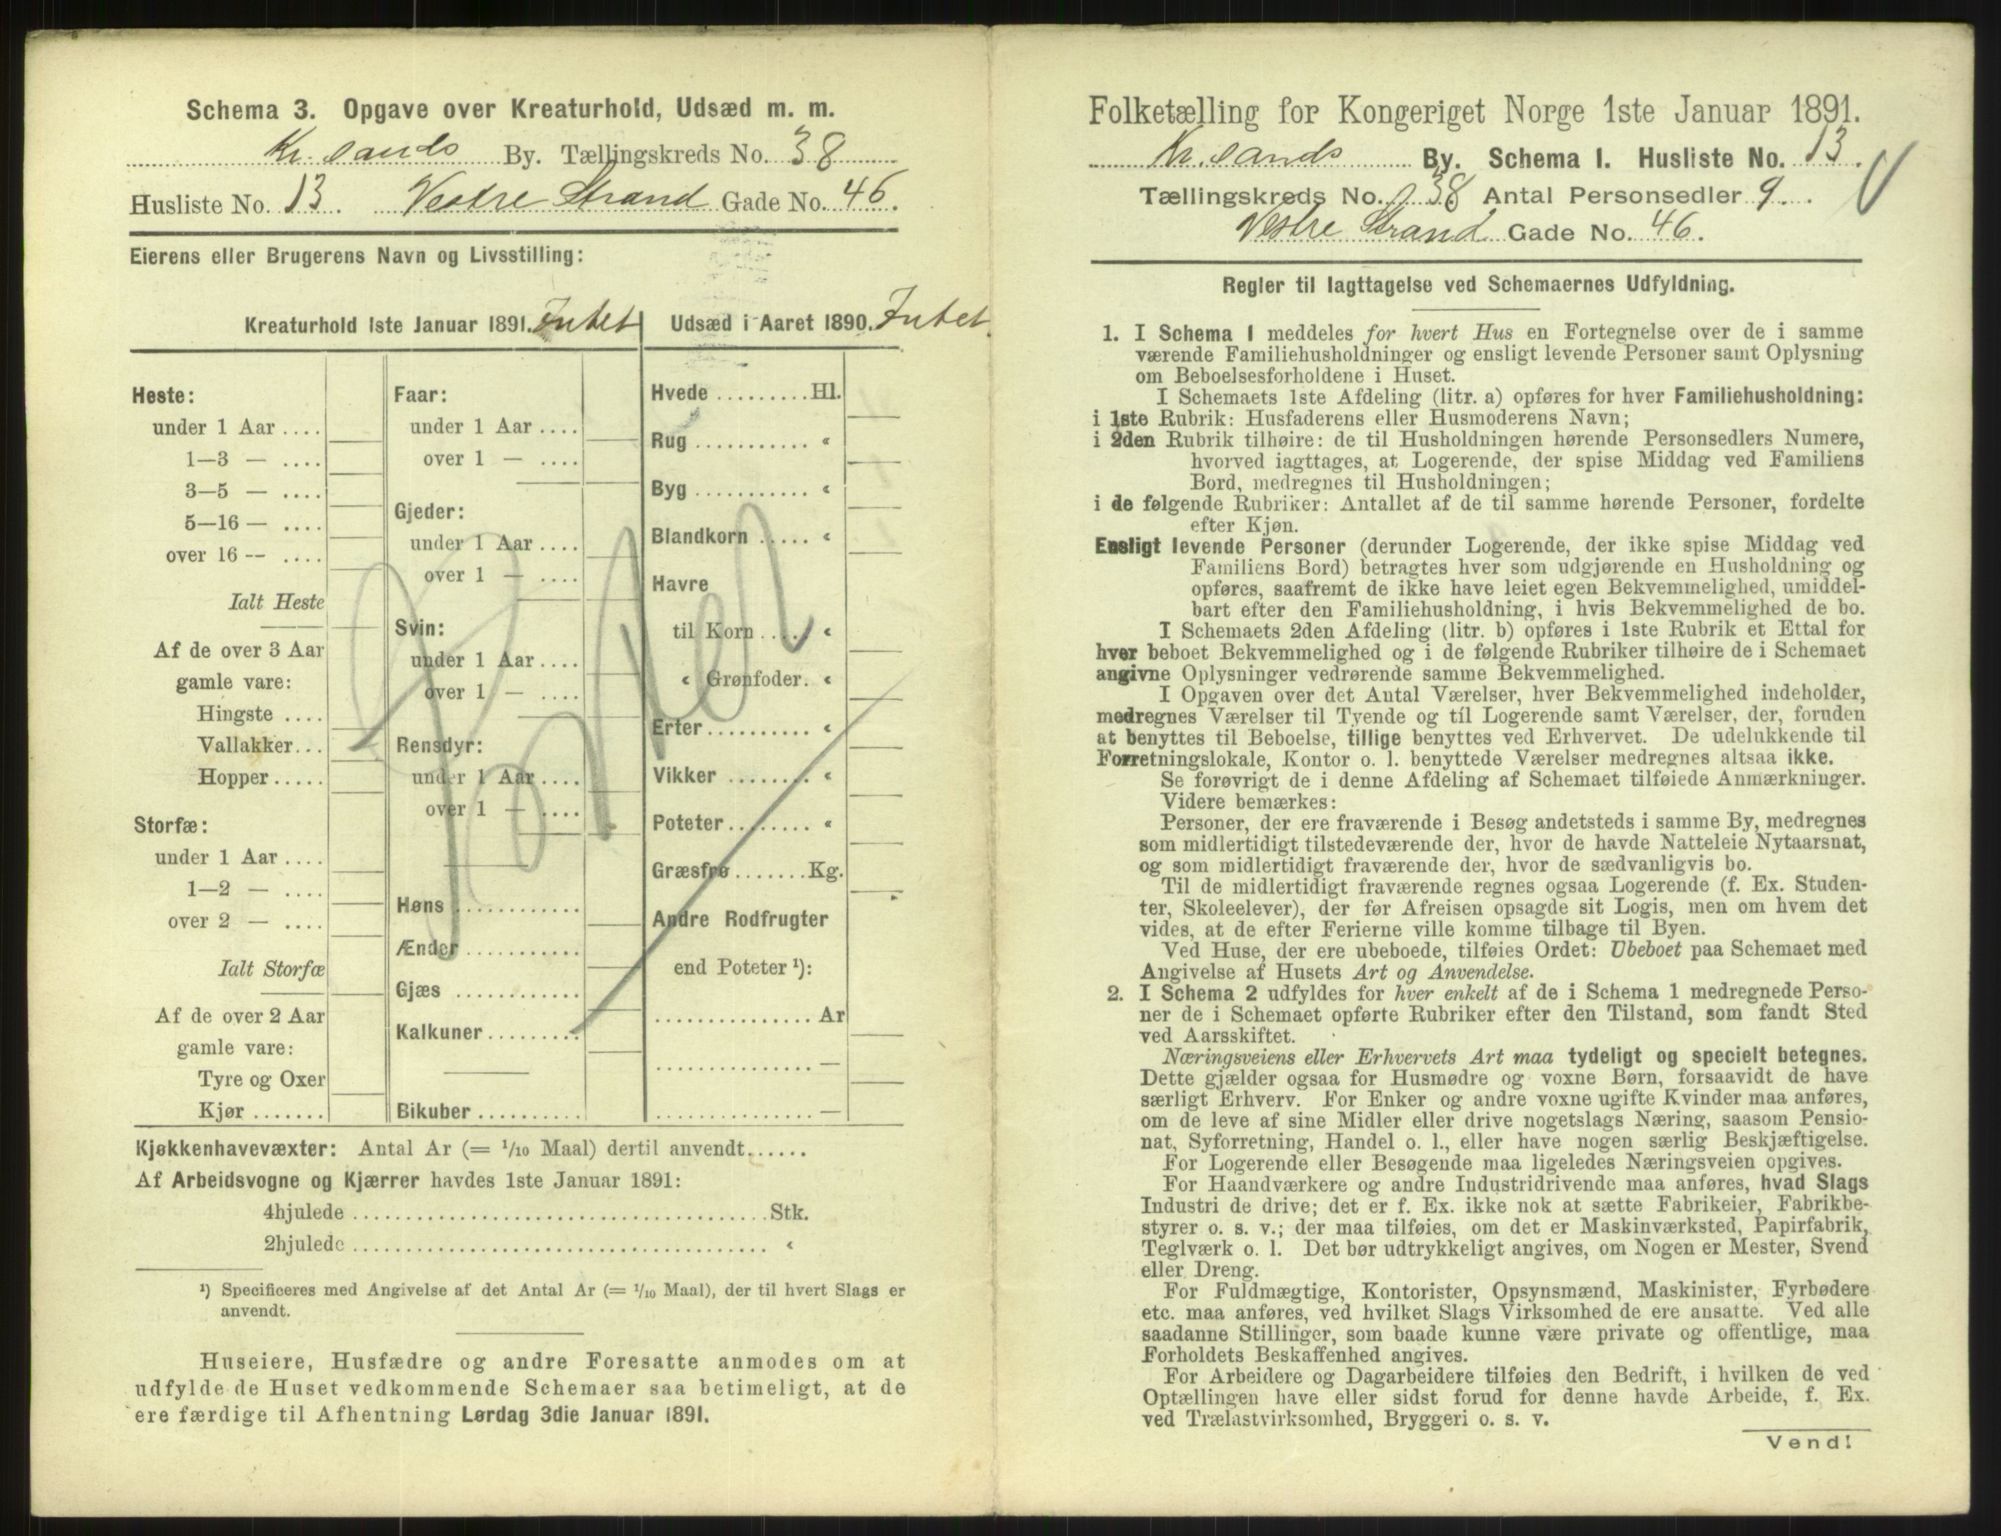 Schema 3. Opgave over Kreaturhold, Udsæd m. m.
Kr.sands By. Tællingskreds No. 38
Husliste No. 13. Vestre Strand Gade No. 46.
Eierens eller Brugerens Navn og Livsstilling:
Kreaturhold 1ste Januar 1891. Intet
Udsæd i Aaret 1890. Intet.
Heste:
under 1 Aar ....
1—3 — ....
3—5 — ....
5—16 — ....
over 16 -- ....
Ialt Heste
Af de over 3 Aar
gamle vare:
Hingste ....
Vallakker...
Hopper .....
Storfæ:
under 1 Aar ....
1—2 — ....
over 2 — ....
Ialt Storfæ
Af de over 2 Aar
gamle vare:
Tyre og Oxer
Kjør .......
Faar:
under 1 Aar ....
over 1 — ....
Gjeder:
under 1 Aar ....
over 1 — ....
Svin:
under 1 Aar ....
over 1 — ....
Rensdyr:
under 1 Aar ....
over 1 — ....
Høns ............
Ænder ...........
Gjæs ............
Kalkuner.........
Bikuber..........
Hvede .........Hl.
Rug ........... «
Byg ........... «
Blandkorn ..... «
Havre
til Korn ..... «
« Grønfoder. «
Erter.......... «
Vikker ........ «
Poteter........ «
Græsfrø .......Kg.
Andre Rodfrugter
end Poteter ¹):
............... Ar
............... —
............... —
Kjøkkenhavevæxter: Antal Ar (= 1/10 Maal) dertil anvendt......
Af Arbeidsvogne og Kjærrer havdes 1ste Januar 1891:
4hjulede ......................................Stk.
2hjulede ...................................... «
¹) Specificeres med Angivelse af det Antal Ar (= 1/10 Maal), der til hvert Slags er
anvendt.
Huseiere, Husfædre og andre Foresatte anmodes om at
udfylde de Huset vedkommende Schemaer saa betimeligt, at de
ere færdige til Afhentning Lørdag 3die Januar 1891.
Folketælling for Kongeriget Norge 1ste Januar 1891.
Kr.sands By. Schema 1. Husliste No. 13.
Tællingskreds No. 38 Antal Personsedler 9.
Vestre Strand Gade No. 46.
Regler til Iagttagelse ved Schemaernes Udfyldning.
1. I Schema 1 meddeles for hvert Hus en Fortegnelse over de i samme
værende Familiehusholdninger og ensligt levende Personer samt Oplysning
om Beboelsesforholdene i Huset.
I Schemaets 1ste Afdeling (litr. a) opføres for hver Familiehusholdning:
i 1ste Rubrik: Husfaderens eller Husmoderens Navn;
i 2den Rubrik tilhøire: de til Husholdningen hørende Personsedlers Numere,
hvorved iagttages, at Logerende, der spise Middag ved Familiens
Bord, medregnes til Husholdningen;
i de følgende Rubriker: Antallet af de til samme hørende Personer, fordelte
efter Kjøn.
Ensligt levende Personer (derunder Logerende, der ikke spise Middag ved
Familiens Bord) betragtes hver som udgjørende en Husholdning og
opføres, saafremt de ikke have leiet egen Bekvemmelighed, umiddel-
bart efter den Familiehusholdning, i hvis Bekvemmelighed de bo.
I Schemaets 2den Afdeling (litr. b) opføres i 1ste Rubrik et Ettal for
hver beboet Bekvemmelighed og i de følgende Rubriker tilhøire de i Schemaet
angivne Oplysninger vedrørende samme Bekvemmelighed.
I Opgaven over det Antal Værelser, hver Bekvemmelighed indeholder,
medregnes Værelser til Tyende og til Logerende samt Værelser, der, foruden
at benyttes til Beboelse, tillige benyttes ved Erhvervet. De udelukkende til
Forretningslokale, Kontor o. l. benyttede Værelser medregnes altsaa ikke.
Se forøvrigt de i denne Afdeling af Schemaet tilføiede Anmærkninger.
Videre bemærkes:
Personer, der ere fraværende i Besøg andetsteds i samme By, medregnes
som midlertidigt tilstedeværende der, hvor de havde Natteleie Nytaarsnat,
og som midlertidigt fraværende der, hvor de sædvanligvis bo.
Til de midlertidigt fraværende regnes ogsaa Logerende (f. Ex. Studen-
ter, Skoleelever), der før Afreisen opsagde sit Logis, men om hvem det
vides, at de efter Ferierne ville komme tilbage til Byen.
Ved Huse, der ere ubeboede, tilføies Ordet: Ubeboet paa Schemaet med
Angivelse af Husets Art og Anvendelse.
2. I Schema 2 udfyldes for hver enkelt af de i Schema 1 medregnede Perso-
ner de i Schemaet opførte Rubriker efter den Tilstand, som fandt Sted
ved Aarsskiftet.
Næringsveiens eller Erhvervets Art maa tydeligt og specielt betegnes.
Dette gjælder ogsaa for Husmødre og voxne Børn, forsaavidt de have
særligt Erhverv. For Enker og andre voxne ugifte Kvinder maa anføres,
om de leve af sine Midler eller drive nogetslags Næring, saasom Pensio-
nat, Syforretning, Handel o. l., eller have nogen særlig Beskjæftigelse.
For Logerende eller Besøgende maa ligeledes Næringsveien opgives.
For Haandværkere og andre Industridrivende maa anføres, hvad Slags
Industri de drive; det er f. Ex. ikke nok at sætte Fabrikeier, Fabrikbe-
styrer o. s. v.; der maa tilføies, om det er Maskinværksted, Papirfabrik,
Teglværk o. l. Det bør udtrykkeligt angives, om Nogen er Mester, Svend
eller Dreng.
For Fuldmægtige, Kontorister, Opsynsmænd, Maskinister, Fyrbødere
etc. maa anføres, ved hvilket Slags Virksomhed de ere ansatte. Ved alle
saadanne Stillinger, som baade kunne være private og offentlige, maa
Forholdets Beskaffenhed angives.
For Arbeidere og Dagarbeidere tilføies den Bedrift, i hvilken de ved
Optællingen have eller sidst forud for denne havde Arbeide, f. Ex.
ved Trælastvirksomhed, Bryggeri o. s. v.
Vend!